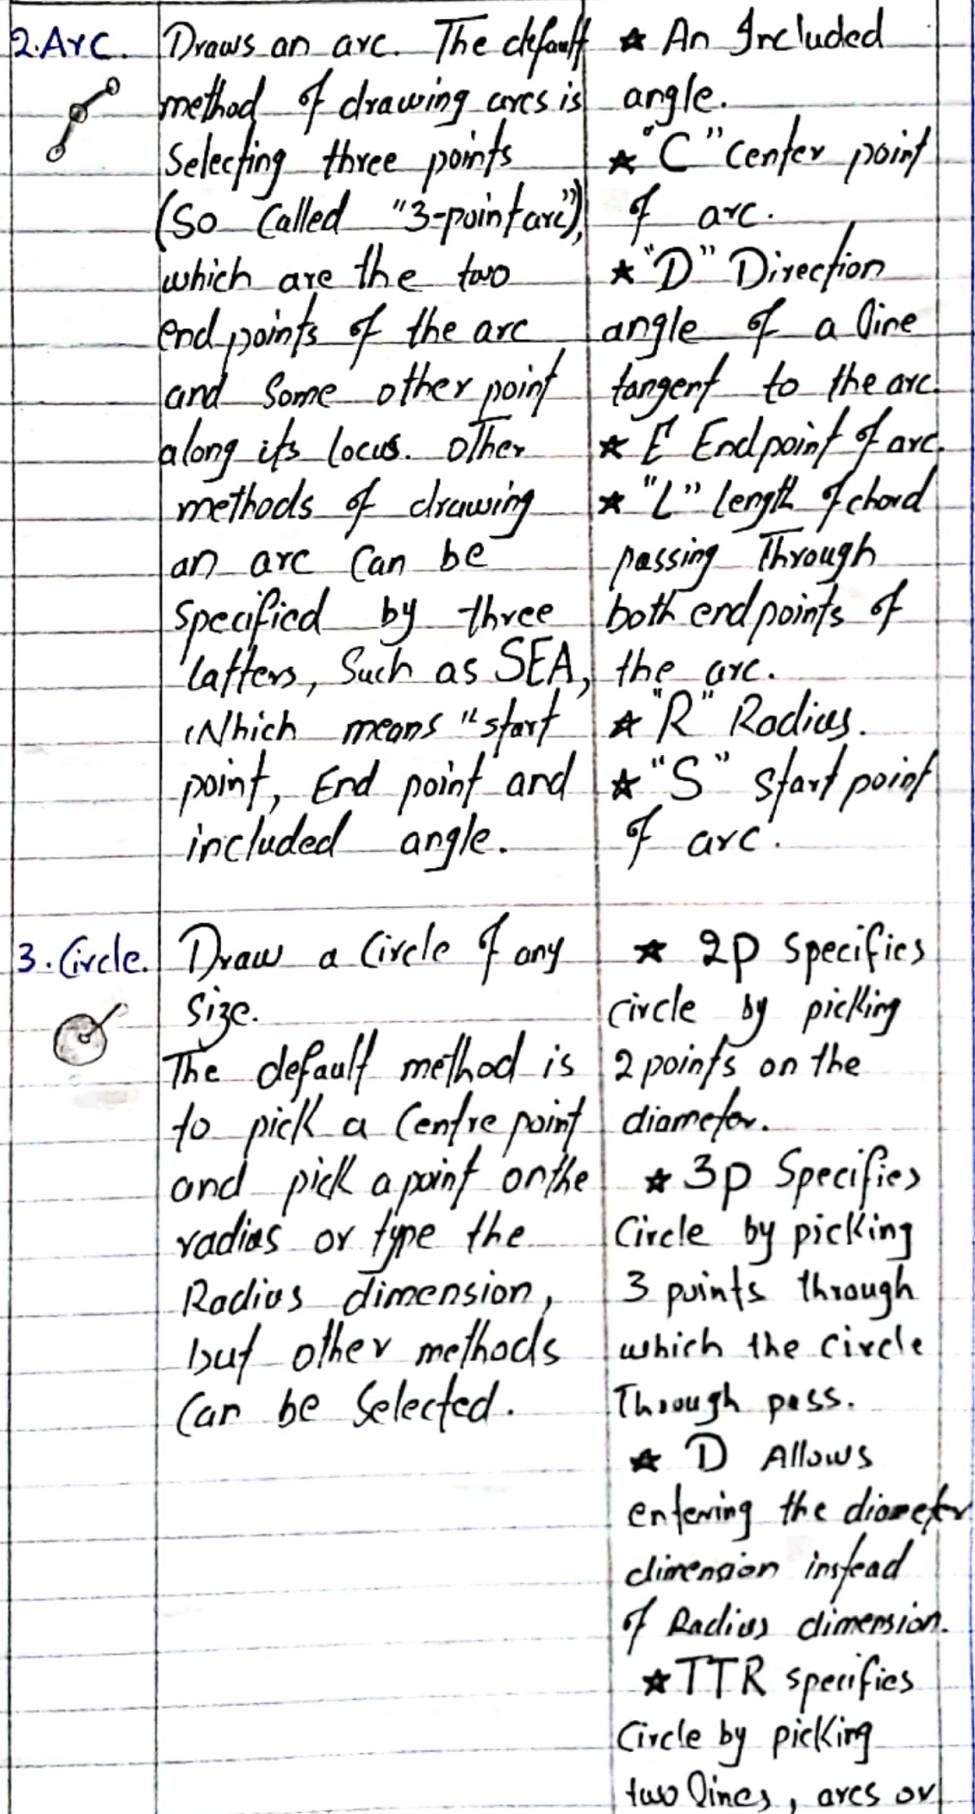 2. Arc.
Draws an arc. The default
method of drawing arcs is
Selecting three points
(So Called "3-point arc"),
which are the two
end points of the arc
and Some other point
along its locus. Other
methods of drawing
an arc Can be
Specified by three
latters, Such as SEA,
Which means "start
point, End point and
included angle.
★ An Included
angle.
★ "C" Center point
of arc.
★ "D" Direction
angle of a line
tangent to the arc.
★ E Endpoint of arc.
★ "L" length of chord
passing Through
both end points of
the arc.
★ "R" Radius.
★ "S" Start point
of arc.
3. Circle.
Draw a Circle of any
Size.
The default method is
to pick a Centre point
and pick a point on the
radius or type the
Radius dimension,
but other methods
Can be Selected.
★ 2p Specifies
circle by picking
2 points on the
diameter.
★ 3p Specifies
Circle by picking
3 points through
which the Circle
Through pass.
★ D Allows
entering the diameter
dimension instead
of Radius dimension.
★ TTR specifies
Circle by picking
two lines, arcs or